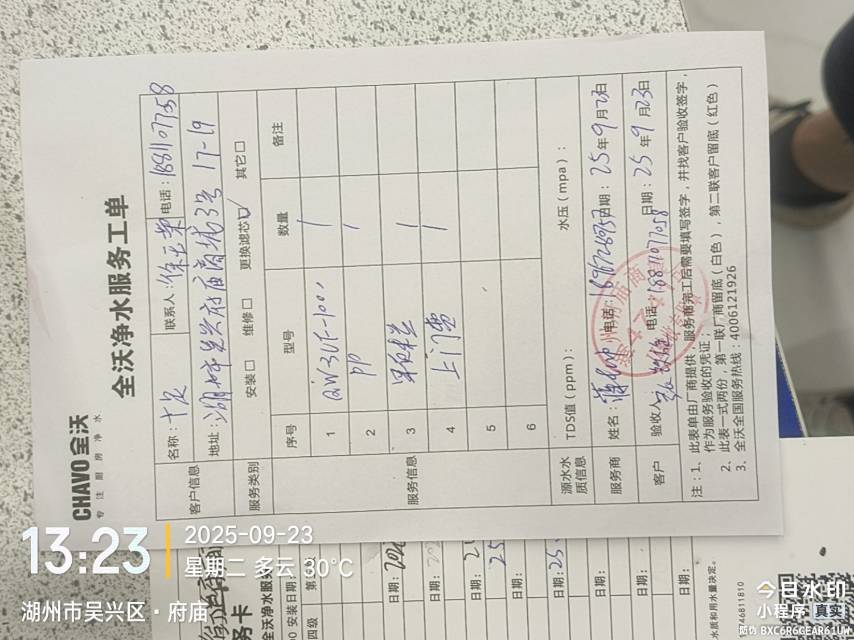 CHAVO全沃
专注厨房净水
全沃净水服务工单
客户信息
名称：十足
联系人：
电话：18811077058
地址：湖州吴兴府庙商城3号 17-19
服务类别
安装□ 维修□ 更换滤芯☑ 其它□
服务信息
序号 型号 数量 备注
1 QW3UF-1001 1
2 PP 1
3 1
4 上门费 1
5
6
源水水质信息
TDS值（ppm）：
水压（mpa）：
服务商
姓名：
电话：
日期：25年9月23日
客户
验收人
电话：18811077058
日期：25年9月23日
注：1、此表单由厂商提供，服务商完工后需要填写签字，并找客户验收签字，
作为服务验收的凭证；
2、此表一式两份，第一联厂商留底（白色），第二联客户留底（红色）
3、全沃全国服务热线：4006121926
务卡
全沃净水服务
安装日期：
四级
日期：
日期：
日期：
日期：
日期：
日期：
水质和用水量决定。
46811810
13:23
2025-09-23
星期二 多云 30℃
湖州市吴兴区·府庙
今日水印
小程序 真实
防伪 BXC6R6GEAR61UW